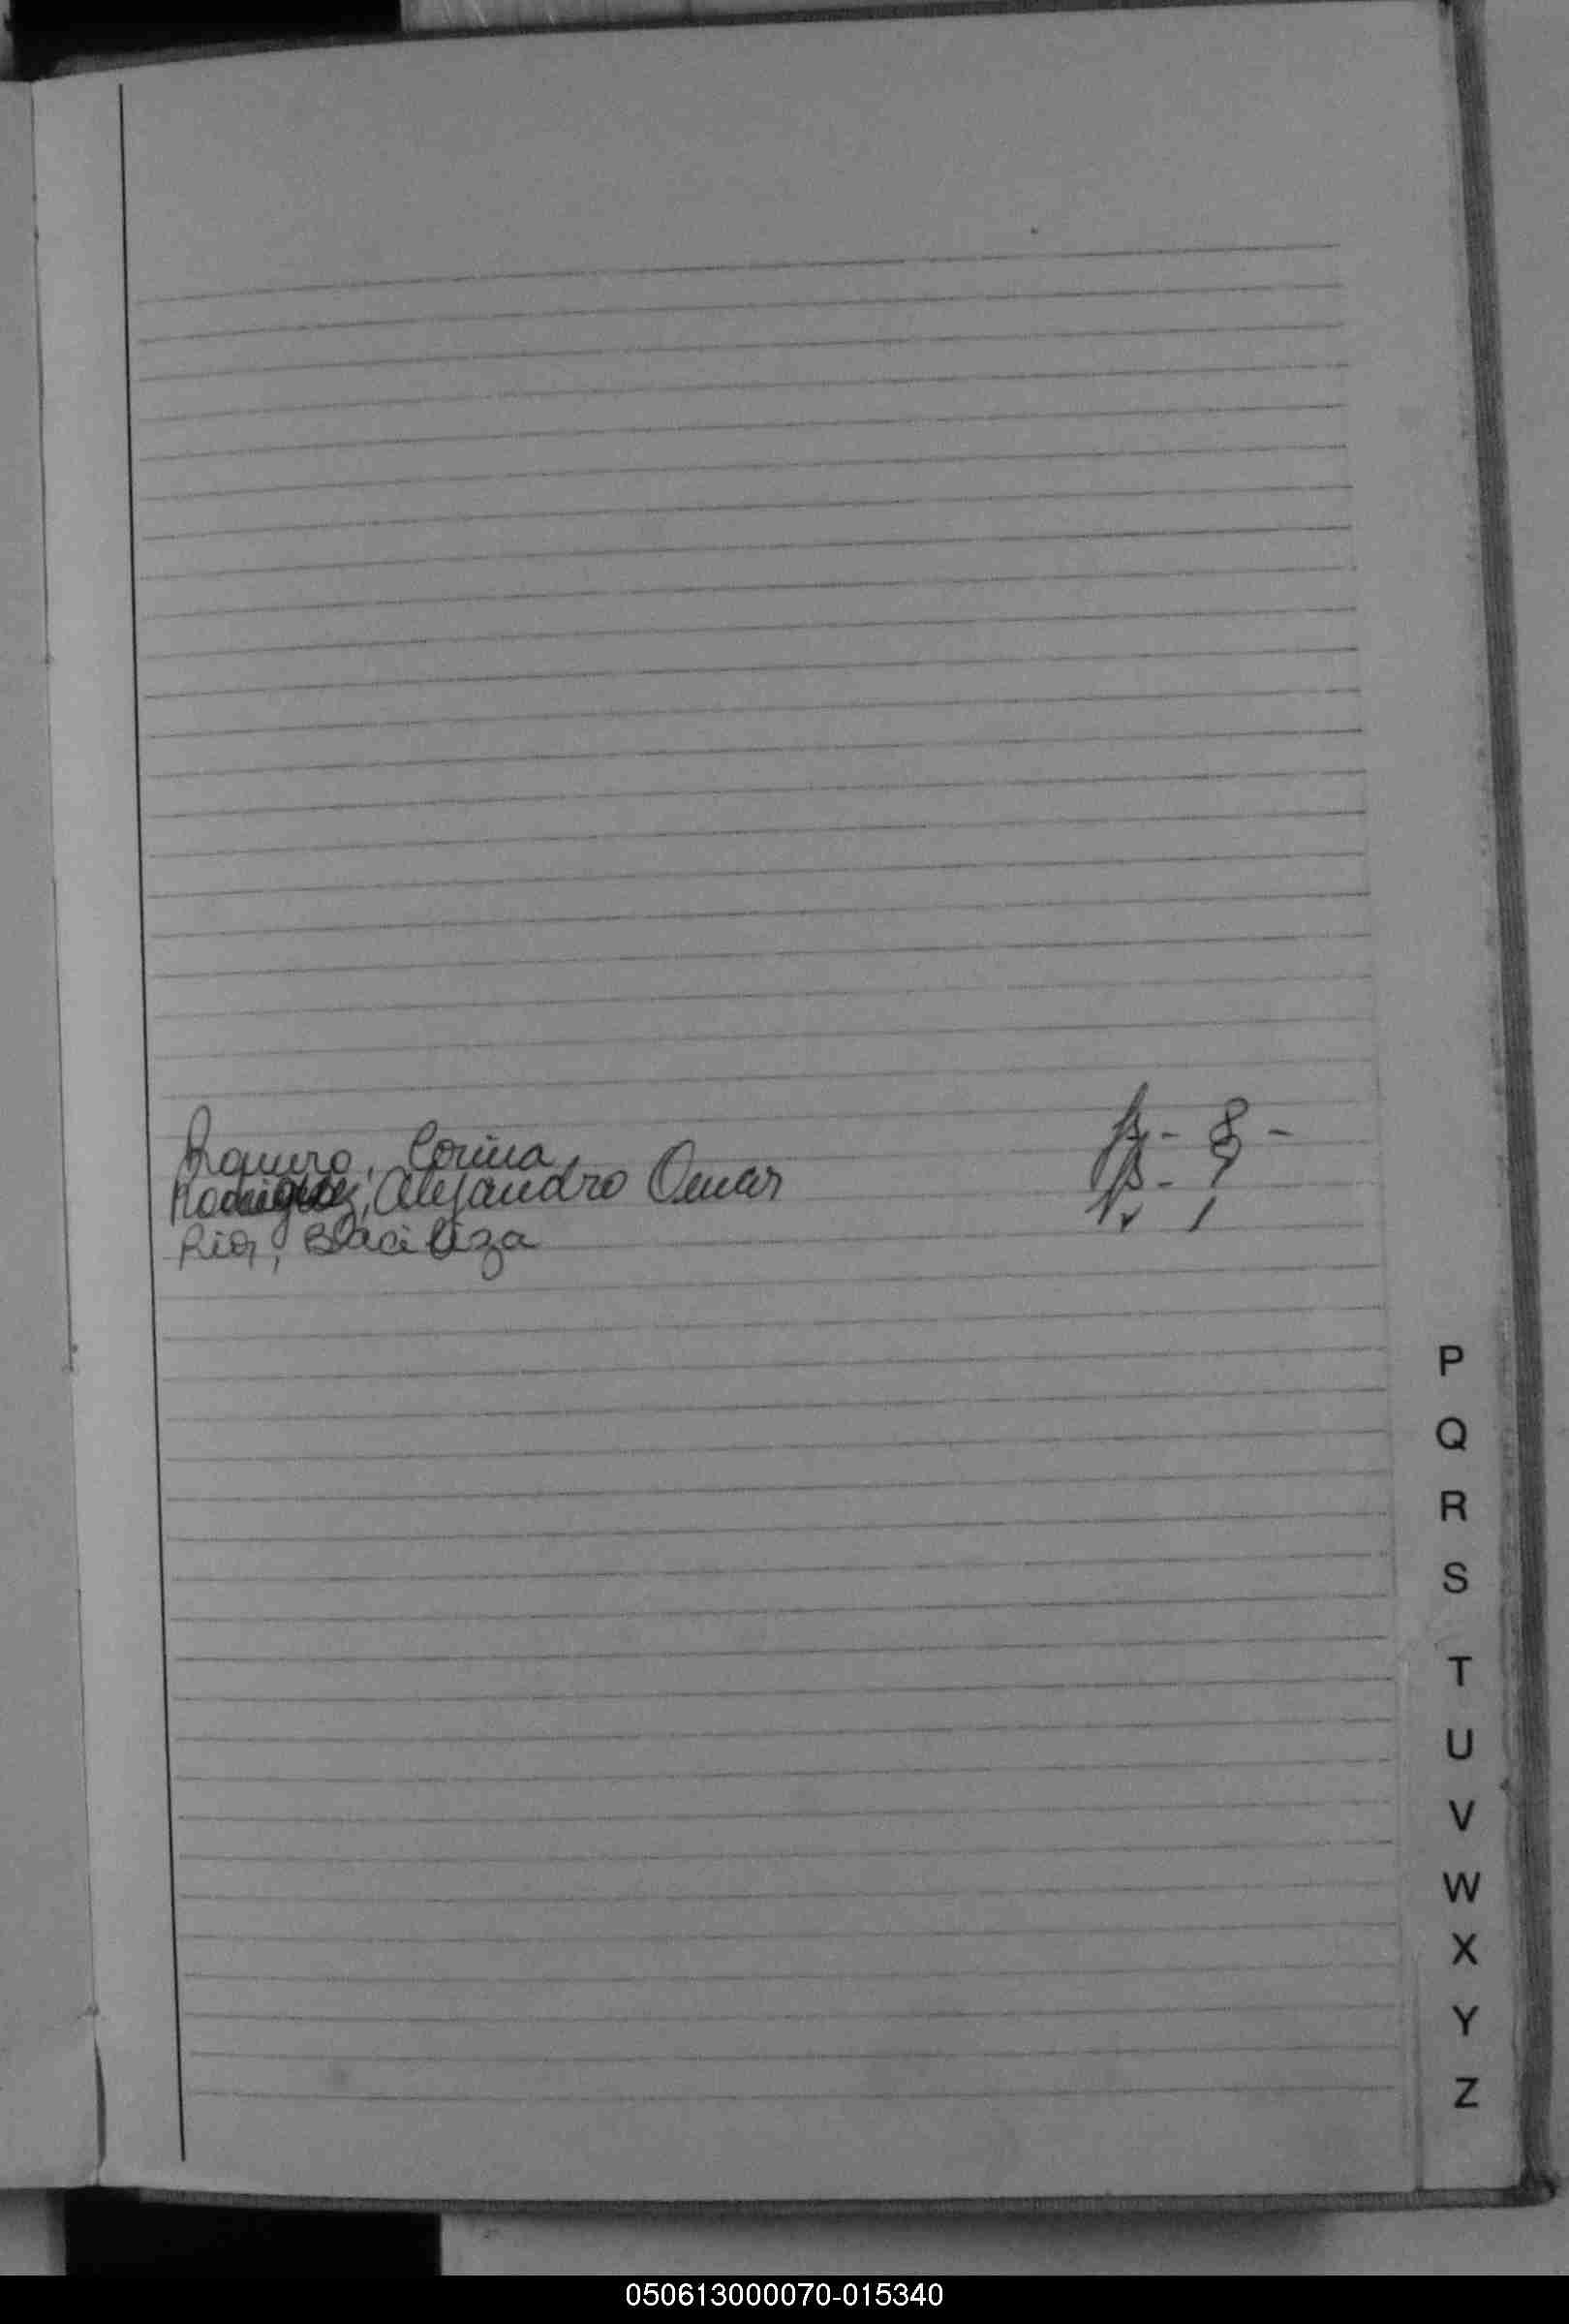 Romero, Corina - 8 -
Rodriguez, Alejandro Omar - 9
Rios, 1
P
Q
R
S
T
U
V
W
X
Y
Z
050613000070-015340